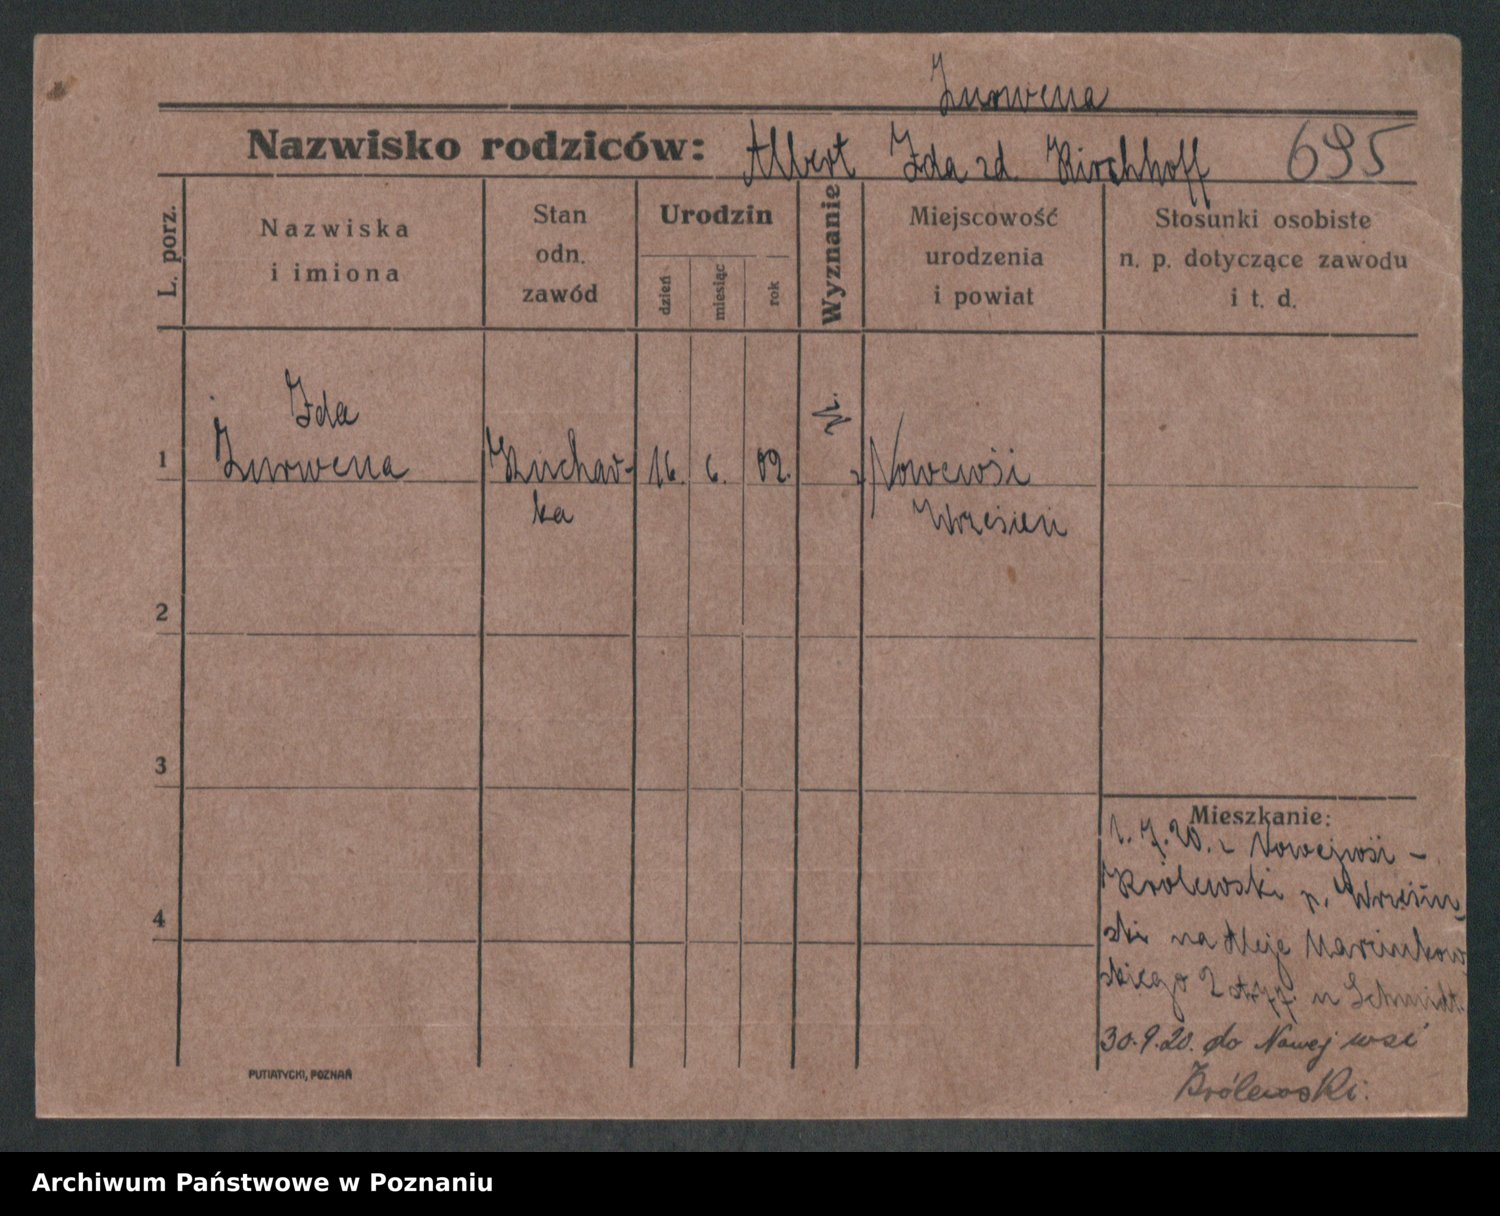 Zurwena
Nazwisko rodziców: Albert Ida zd. Kirchhoff 695
L. porz.
Nazwiska
i imiona
Stan
odn.
zawód
Urodzin
dzień
miesiąc
rok
Wyznanie
Miejscowość
urodzenia
i powiat
Stosunki osobiste
n. p. dotyczące zawodu
i t. d.
Ida
1 Zurwena Kuchar- 16. 6. 02. Nowewsi
ka Wrzesień
2
3
4
Mieszkanie:
1. 7. 20. z Nowejwsi -
Królewski p. Wrzesiń-
ski na Aleje Marcinkow
skiego 2 u Schmidt.
30.9.20. do Nowej wsi
Królewski.
PUTIATYCKI, POZNAŃ
Archiwum Państwowe w Poznaniu